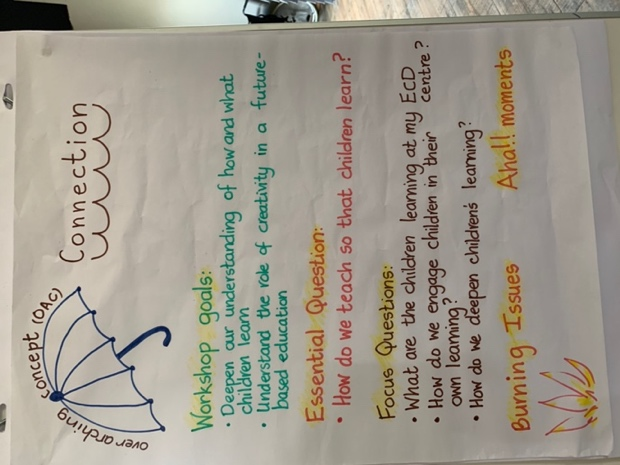 overarching concept (OAC)
Connection
Workshop goals:
• Deepen our understanding of how and what
children learn
• Understand the role of creativity in a future-
based education
Essential Question:
• How do we teach so that children learn?
Focus Questions:
• What are the children learning at my ECD
centre?
• How do we engage children in their
own learning?
• How do we deepen children's learning?
Burning Issues
Aha!! moments